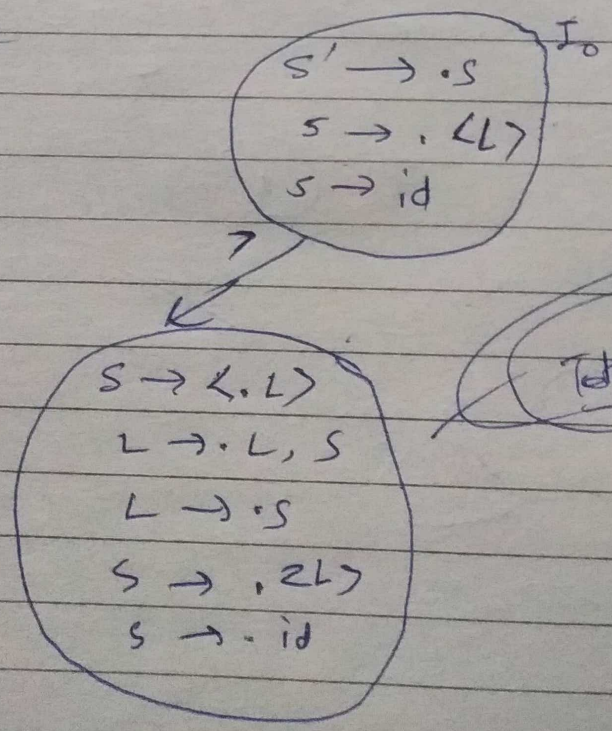 I₀
S' → .S
S → . <L>
S → id
>
S → <.L>
L → .L, S
L → .S
S → .<L>
S → . id
Id